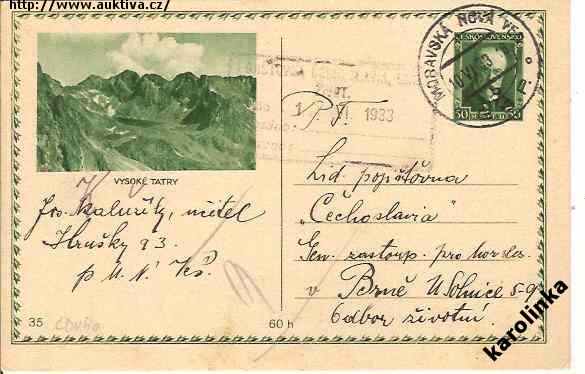 http://www.auktiva.cz/
MORAVSKÁ NOVÁ VES
ČESKOSLOVENSKO
50 50
1933
P. T.
VYSOKÉ TATRY
Lid. pojišťovna
"Čechoslavia"
Jos. učitel
Hrušky 93.
Gen. zastoup. pro
p. M. N. Ves.
v Brně U Solnice 5-9
Odbor životní.
35
60 h
karolinka